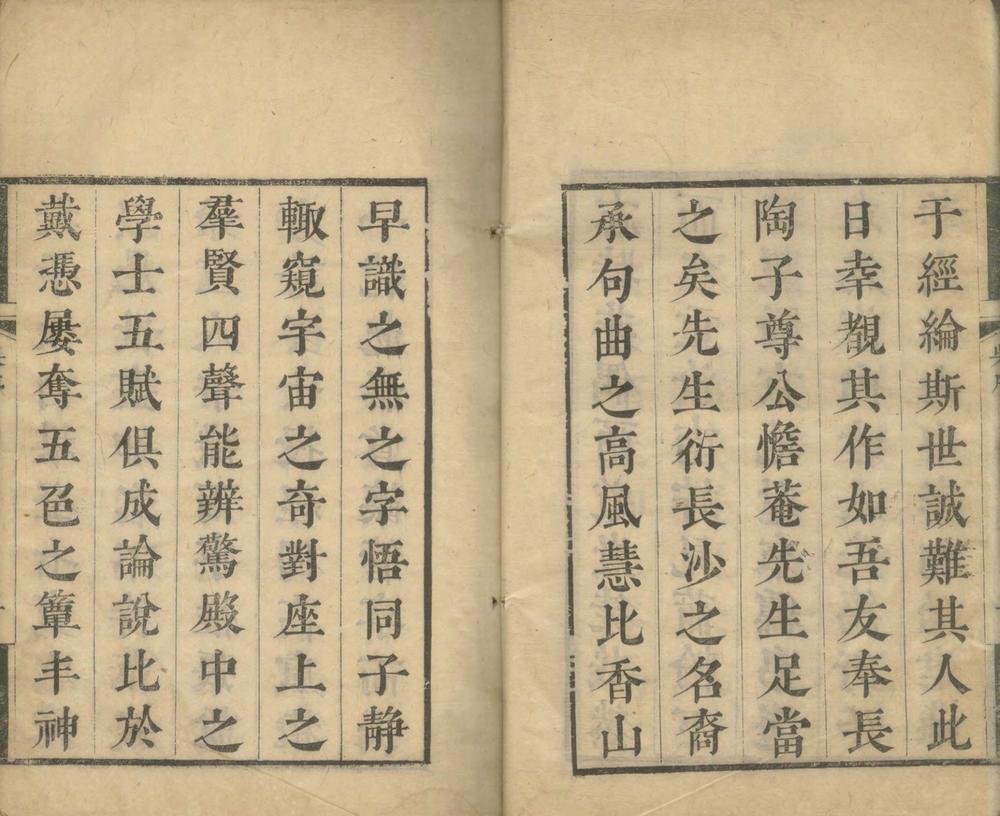 于經綸斯世誠難其人此
日幸覩其作如吾友奉長
陶子尊公憺菴先生足當
之矣先生衍長沙之名裔
承句曲之高風慧比香山
早識之無之字悟同子静
輙窺宇宙之奇對座上之
羣賢四聲能辨驚殿中之
學士五賦俱成論說比於
戴憑屢奪五色之簟丰神